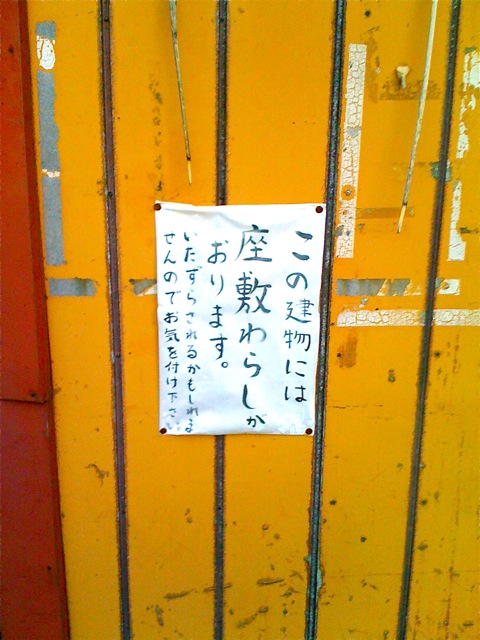 この建物には
座敷わらしが
おります。
いたずらされるかもしれま
せんのでお気を付け下さい